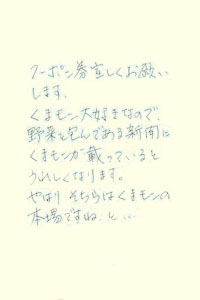 クーポン券宜しくお願い
します。
くまモン大好きなので、
野菜を包んである新聞に
くまモンが載っていると
うれしくなります。
やはりそちらはくまモンの
本場ですね、と…